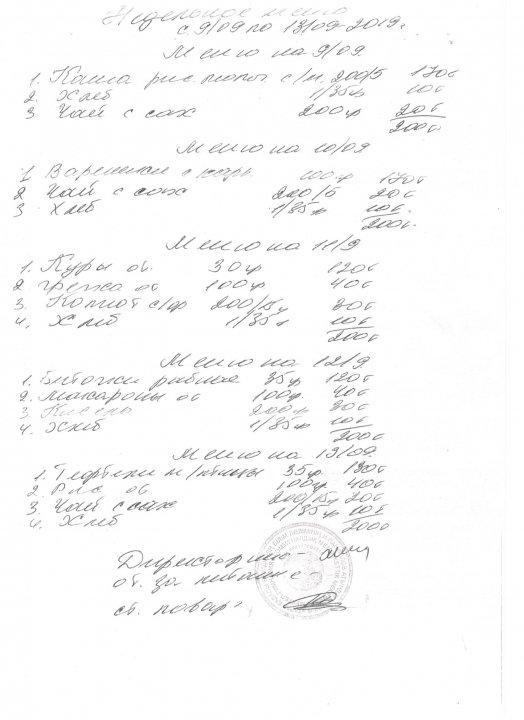 Недельное меню
с 9/09 по 13/09 2019г
Меню на 9/09.
1. Каша рис молоч с/м. 200/5 170с
2. Хлеб 1/35гр 10с
3 Чай с сах 200гр 20с
200с
Меню на 10/09
1 Вареники с карт 100гр 170с
2 Чай с сах 200/15 20с
3 Хлеб 1/35гр 10с.
200с.
Меню на 11/9
1. Куры от. 30гр 120с
2 гречка от 100гр 40с
3. Компот с/ф 200/15гр 30с
4. Хлеб 1/35г 10с
200с
Меню на 12/9.
1. Биточки рыбные 35гр 120с
2. макароны от 100гр. 40с
3 Кисель 200гр 30с
4. Хлеб 1/35гр 10с
200с
Меню на 13/09.
1. Тефтели м/птицы 35гр 130с
2. Рис от 100гр 40с
3. Чай с сах 200/15гр 20с
4. Хлеб 1/35гр 10с
200с
Директор
от. за питание -
ст. повар -